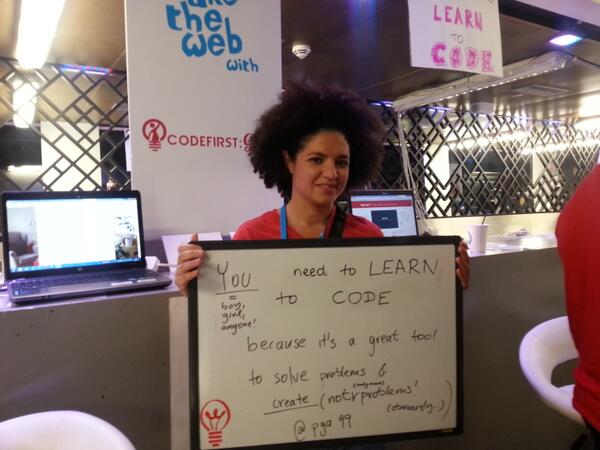 the
web
with
LEARN
TO
CODE
CODEFIRST:
YOU need to LEARN
=
boy,
girl,
anyone!
to CODE
because it's a great tool
to solve problems &
create (not problems!
(obviously..)
@pga99